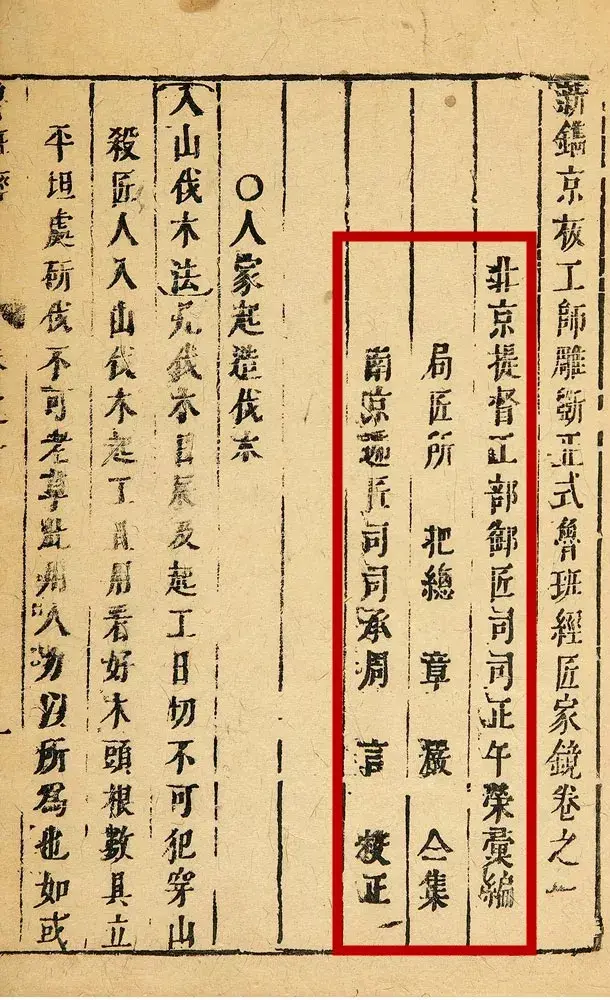 新鐫京板工師雕斲正式魯班經匠家鏡卷之一
北京提督工部御匠司司正午榮彙編
局匠所 把總 章嚴 仝集
南京逓匠司司承周 言 校正
○人家起造伐木
入山伐木法凡伐木日辰及起工日切不可犯穿山
殺匠人入山伐木起工且用看好木頭根數具立
平坦處斫伐不可老草此用人力以所爲也如或